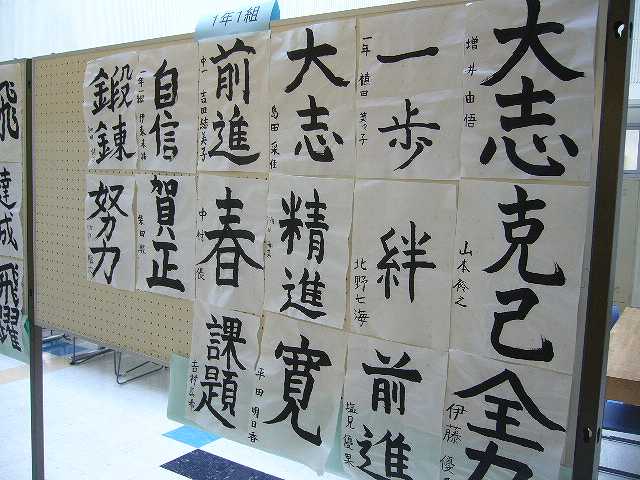 1年1組
大志
増井由悟
一歩
一年 植田
大志
島田
前進
中一 吉田結美子
自信
鍛錬
克己
山本
絆
北野七海
精進
春
中村
賀正
柴田
努力
全力
伊藤優
前進
塩見優果
寛
平田明日香
課題
吉村
飛
達成
飛躍